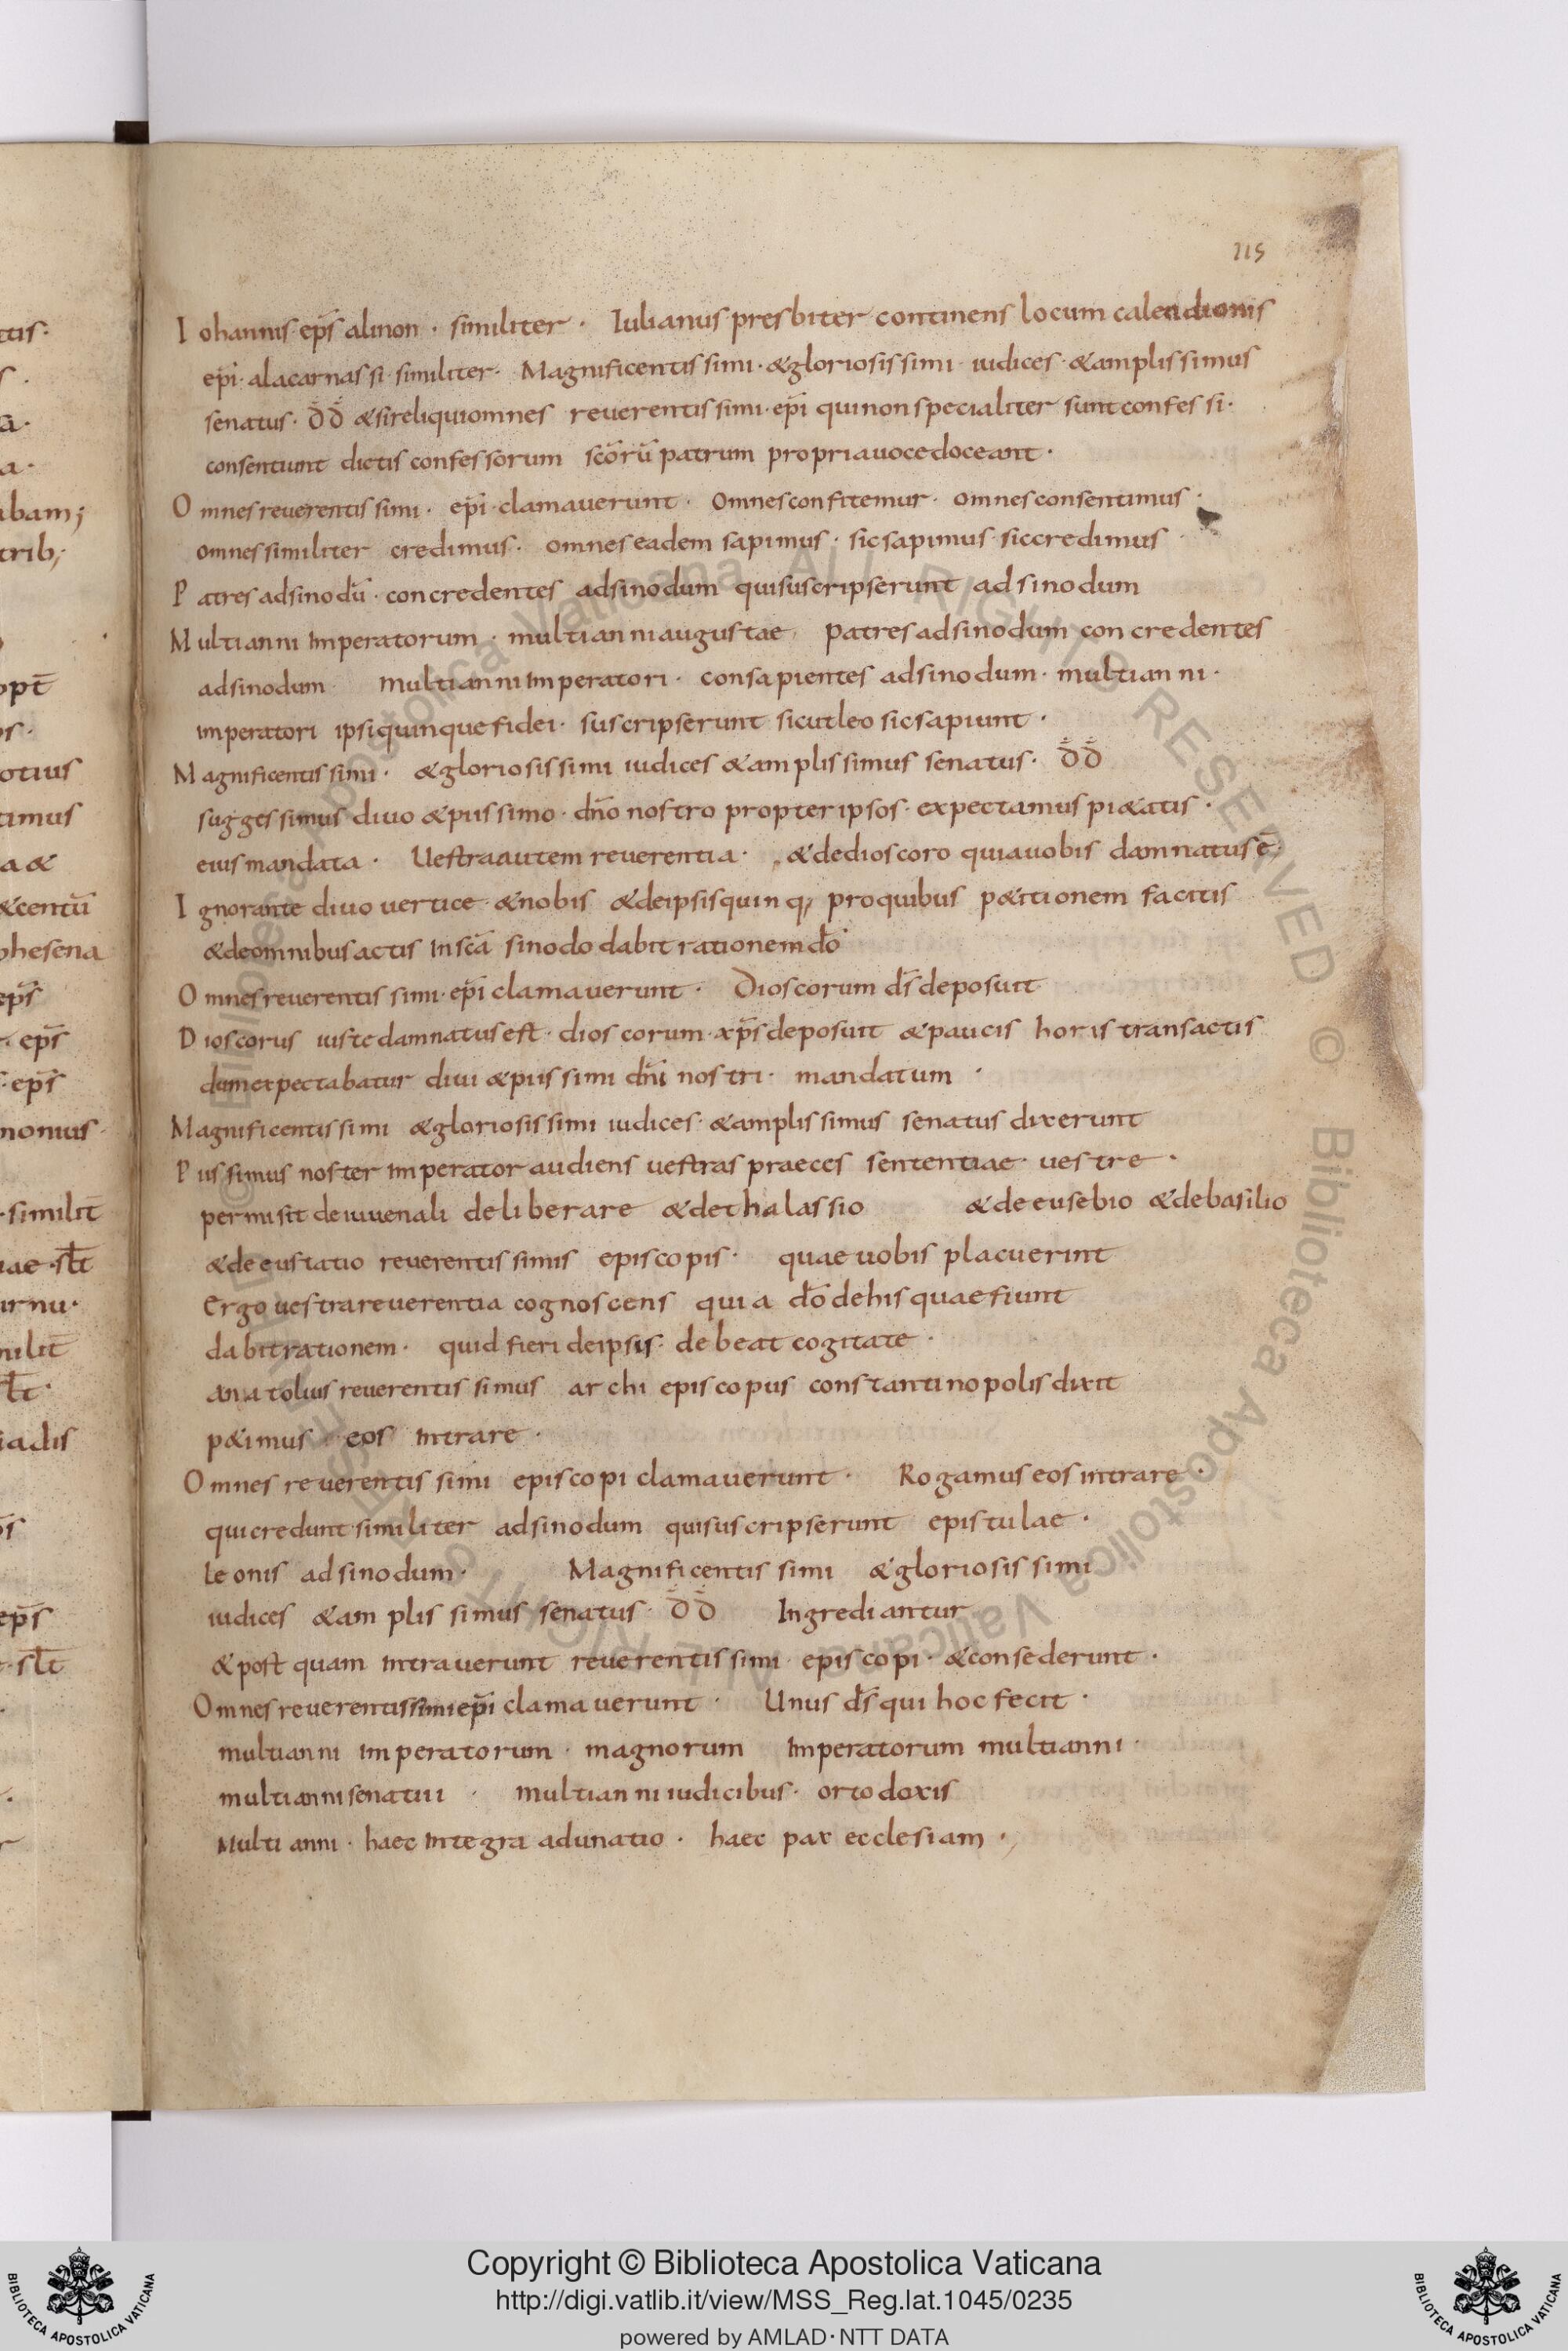 115
Iohannis ep̄s alinon · similiter · Iulianus presbiter continens locum calendionis
ep̄i · alacarnassi · similiter · Magnificentissimi · & gloriosissimi · iudices · & amplissimus
senatus · đđ & si reliqui omnes reverentissimi · ep̄i qui non specialiter sunt confessi ·
consentiunt dictis confessorum sc̄orū patrum propria voce doceant ·
Omnes reverentissimi · ep̄i · clamaverunt · Omnes confitemur · omnes consentimus ·
omnes similiter credimus · omnes eadem sapimus · sic sapimus · sic credimus ·
Patres ad sinodū · concredentes ad sinodum qui suscripserunt ad sinodum
Multi anni imperatorum · multi anni augustae · patres ad sinodum concredentes
ad sinodum multi anni imperatori · consapientes ad sinodum · multi anni ·
imperatori ipsi quinque fidei · suscripserunt sicut leo sic sapiunt ·
Magnificentissimi · & gloriosissimi iudices & amplissimus senatus · đđ
suggessimus divo & piissimo · dn̄o nostro propter ipsos · expectamus pi&atis ·
eius mandata · Uestra autem reverentia · & de dioscoro quia uobis damnatus ē
Ignorante divo vertice · & nobis & de ipsis quinq; pro quibus p&itionem facitis
& de omnibus actis in sc̄a sinodo dabit rationem dō
Omnes reverentissimi · ep̄i clamaverunt · Dioscorum ds̄ deposuit
Dioscorus iuste damnatus est · dioscorum · xp̄s deposuit & paucis horis transactis
dum expectabatur divi & piissimi dn̄i nostri · mandatum ·
Magnificentissimi & gloriosissimi iudices · & amplissimus senatus dixerunt
Piissimus noster imperator audiens uestras praeces sententiae · vestre ·
permisit de iuvenali deliberare & de thalassio & de eusebio & de basilio
& de eustatio reverentissimis episcopis · quae uobis placuerint
Ergo uestra reverentia cognoscens quia dō de his quae fiunt
dabit rationem · quid fieri de ipsis · debeat cogitate ·
anatolius reverentissimus archi episcopus constantinopolis dixit
p&imus eos intrare ·
Omnes reverentissimi episcopi clamaverunt · Rogamus eos intrare ·
qui credunt similiter ad sinodum qui suscripserunt epistulae ·
leonis ad sinodum · Magnificentissimi & gloriosissimi
iudices & amplissimus senatus · đđ Ingrediantur
& post quam intraverunt reverentissimi episcopi · & consederunt ·
Omnes reverentissimi ep̄i clamaverunt · Unus ds̄ qui hoc fecit ·
multi anni imperatorum · magnorum imperatorum multi anni ·
multi anni senatui · multi anni iudicibus · ortodoxis
Multi anni · haec integra adunatio · haec pax ecclesiam ·
Copyright © Biblioteca Apostolica Vaticana
http://digi.vatlib.it/view/MSS_Reg.lat.1045/0235
powered by AMLAD · NTT DATA